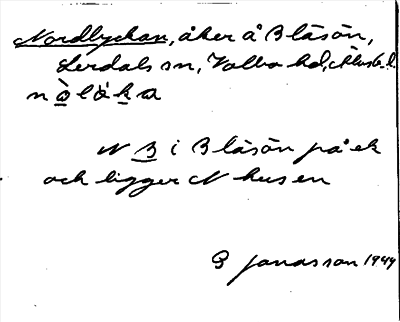 Nordlyckan, åker å Blåsön,
Lerdals sn, Valbo hd, Älvsb. l.
nòlẳka
N B i Blåsön på ek
och ligger N husen
B Jonasson 1949